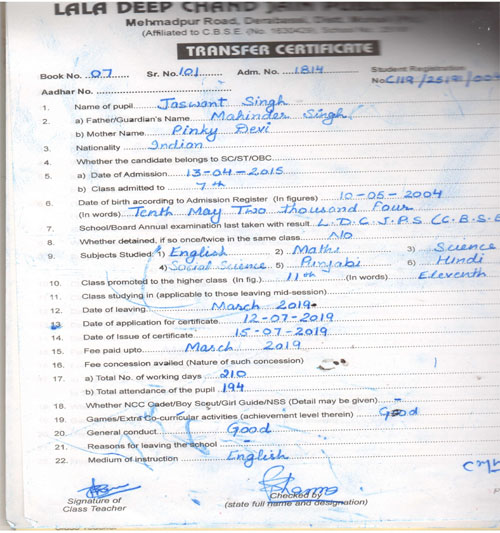 LALA DEEP CHAND JAIN
Mehmadpur Road,
(Affiliated to C.B.S.E. (No.
TRANSFER CERTIFICATE
Student Registration
Book No. 07 Sr. No. 101 Adm. No. 1814
Aadhar No.
1. Name of pupil Jaswant Singh
2. a) Father/Guardian's Name Mahinder Singh
b) Mother Name Pinky Devi
3. Nationality Indian
4. Whether the candidate belongs to SC/ST/OBC
5. a) Date of Admission 13-04-2015
b) Class admitted to 7th
6. Date of birth according to Admission Register (In figures) 10-05-2004
(In words) Tenth May Two thousand Four
7. School/Board Annual examination last taken with result L.D.C.J.P.S (C.B.S.E
8. Whether detained, if so once/twice in the same class No
9. Subjects Studied 1) English 2) Maths 3) Science
4) Social Science 5) Punjabi 6) Hindi
10. Class promoted to the higher class (In fig.) 11th (In words) Eleventh
11. Class studying in (applicable to those leaving mid-session)
12. Date of leaving March 2019
13. Date of application for certificate 12-07-2019
14. Date of Issue of certificate 15-07-2019
15. Fee paid upto March 2019
16. Fee concession availed (Nature of such concession)
17. a) Total No. of working days 210
b) Total attendance of the pupil 194
18. Whether NCC Cadet/Boy Scout/Girl Guide/NSS (Detail may be given)
19. Games/Extra Co-curricular activities (achievement level therein) Good
20. General conduct Good
21. Reasons for leaving the school
22. Medium of instruction English
Signature of
Class Teacher
Checked by
(state full name and designation)